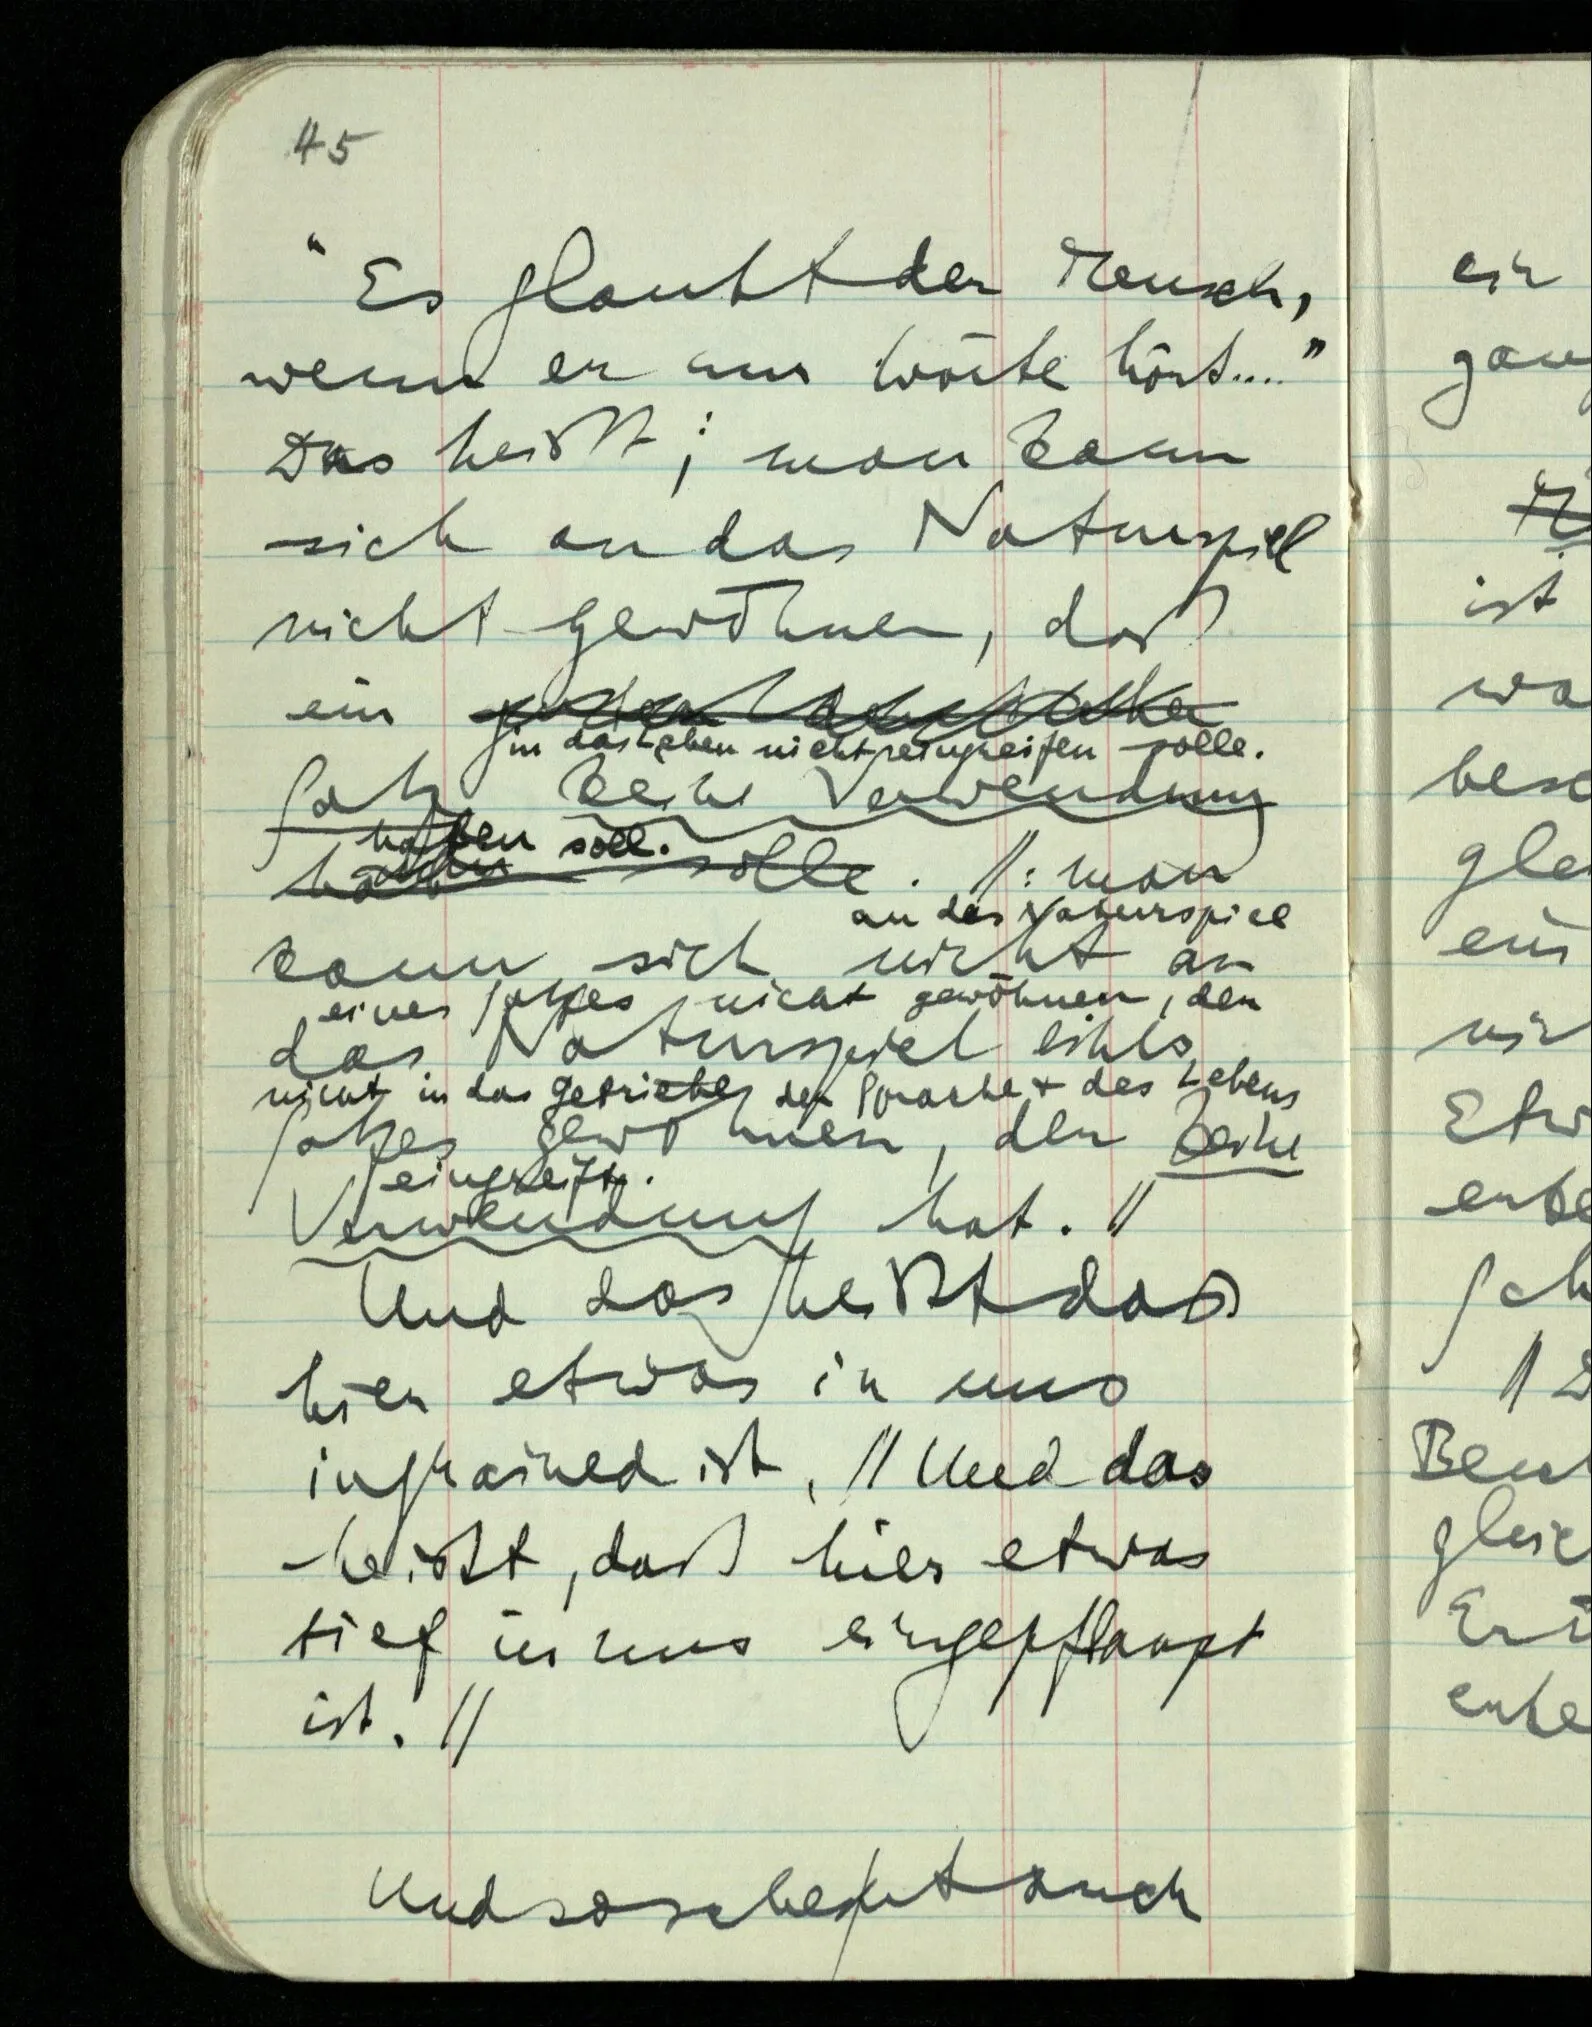 45
"Es glaubt der Mensch,
wenn er nur Worte hört...."
Das heißt; man kann
sich an das Naturspiel
nicht gewöhnen, daß
ein
in das Leben nicht eingreifen solle.
Satz keine Verwendung
haben soll.
haben solle. //: man
an das Naturspiel
kann sich nicht an
eines Satzes nicht gewöhnen, der
das Naturspiel eines
nicht in das Getriebe der Sprache + des Lebens
Satzes gewöhnen, der keine
eingreift.
Verwendung hat. //
Und das heißt daß
hier etwas in uns
ingrained ist, // Und das
heißt, daß hier etwas
tief in uns eingepflanzt
ist. //
Und so scheint auch
ein
ist